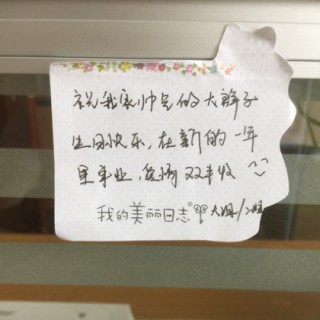 祝我家帅气的大胖子
生日快乐，在新的一年
里事业、爱情双丰收
我的美丽日志® 大姐/二姐